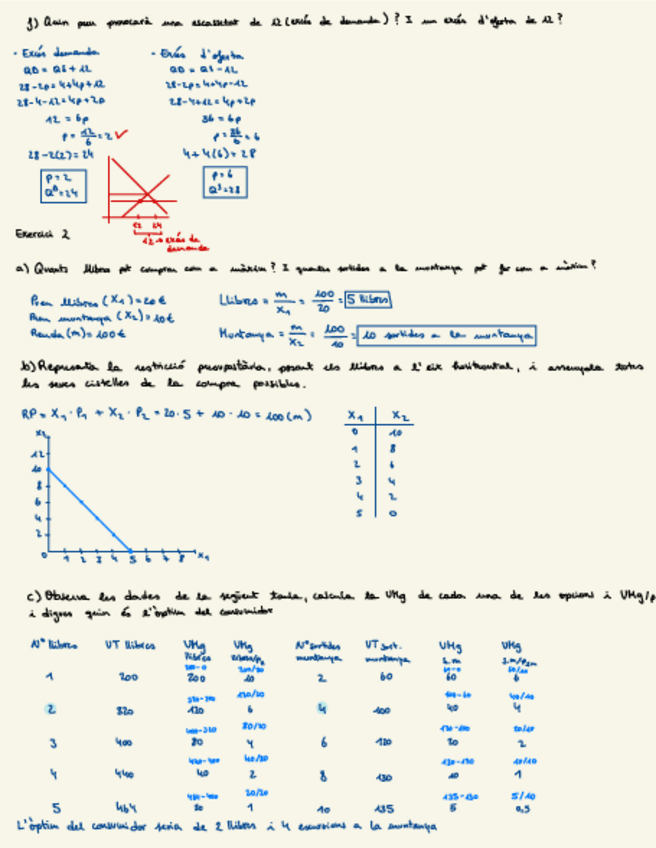 f) Quin preu provocarà una escassetat de 12 (excés de demanda)? I un excés d'oferta de 12?
- Excés demanda
QD = QS + 12
28-2p = 4+4p+12
28-4-12 = 4p+2p
12 = 6p
p = 12/6 = 2 ✓
28-2(2) = 24
p = 2
Qᴰ = 24
- Excés d'oferta
QD = QS - 12
28-2p = 4+4p-12
28-4+12 = 4p+2p
36 = 6p
p = 36/6 = 6
4+4(6) = 28
p = 6
Qˢ = 28
12 24
12 → excés de
demanda
Exercici 2
a) Quants llibres pot comprar com a màxim? I quantes sortides a la muntanya pot fer com a màxim?
Preu llibres (X₁) = 20€
Preu muntanya (X₂) = 10€
Renda (m) = 100€
Llibres = m/X₁ = 100/20 = 5 llibres
Muntanya = m/X₂ = 100/10 = 10 sortides a la muntanya
b) Representa la restricció pressupostària, posant els llibres a l'eix horitzontal, i assenyala totes
les seves cistelles de la compra possibles.
RP = X₁ · P₁ + X₂ · P₂ = 20·5 + 10·10 = 100 (m)
X₁ X₂
0 10
1 8
2 6
3 4
4 2
5 0
X₂
12
10
8
6
4
2
0 1 2 3 4 5 6 7 8 X₁
c) Observa les dades de la següent taula, calcula la UMg de cada una de les opcions i UMg/p
i digues quin és l'òptim del consumidor
Nº llibres UT llibres UMg llibres UMg llibres/p₂ Nº sortides muntanya UT sort. muntanya UMg s.m UMg s.m/psm
200-0 200/20 60-0 60/10
1 200 200 10 2 60 60 6
320-200 120/20 100-60 40/10
2 320 120 6 4 100 40 4
400-320 80/20 120-100 20/10
3 400 80 4 6 120 20 2
440-400 40/20 130-120 10/10
4 440 40 2 8 130 10 1
20/20 135-130 5/10
5 464 20 1 10 135 5 0,5
L'òptim del consumidor seria de 2 llibres i 4 excursions a la muntanya